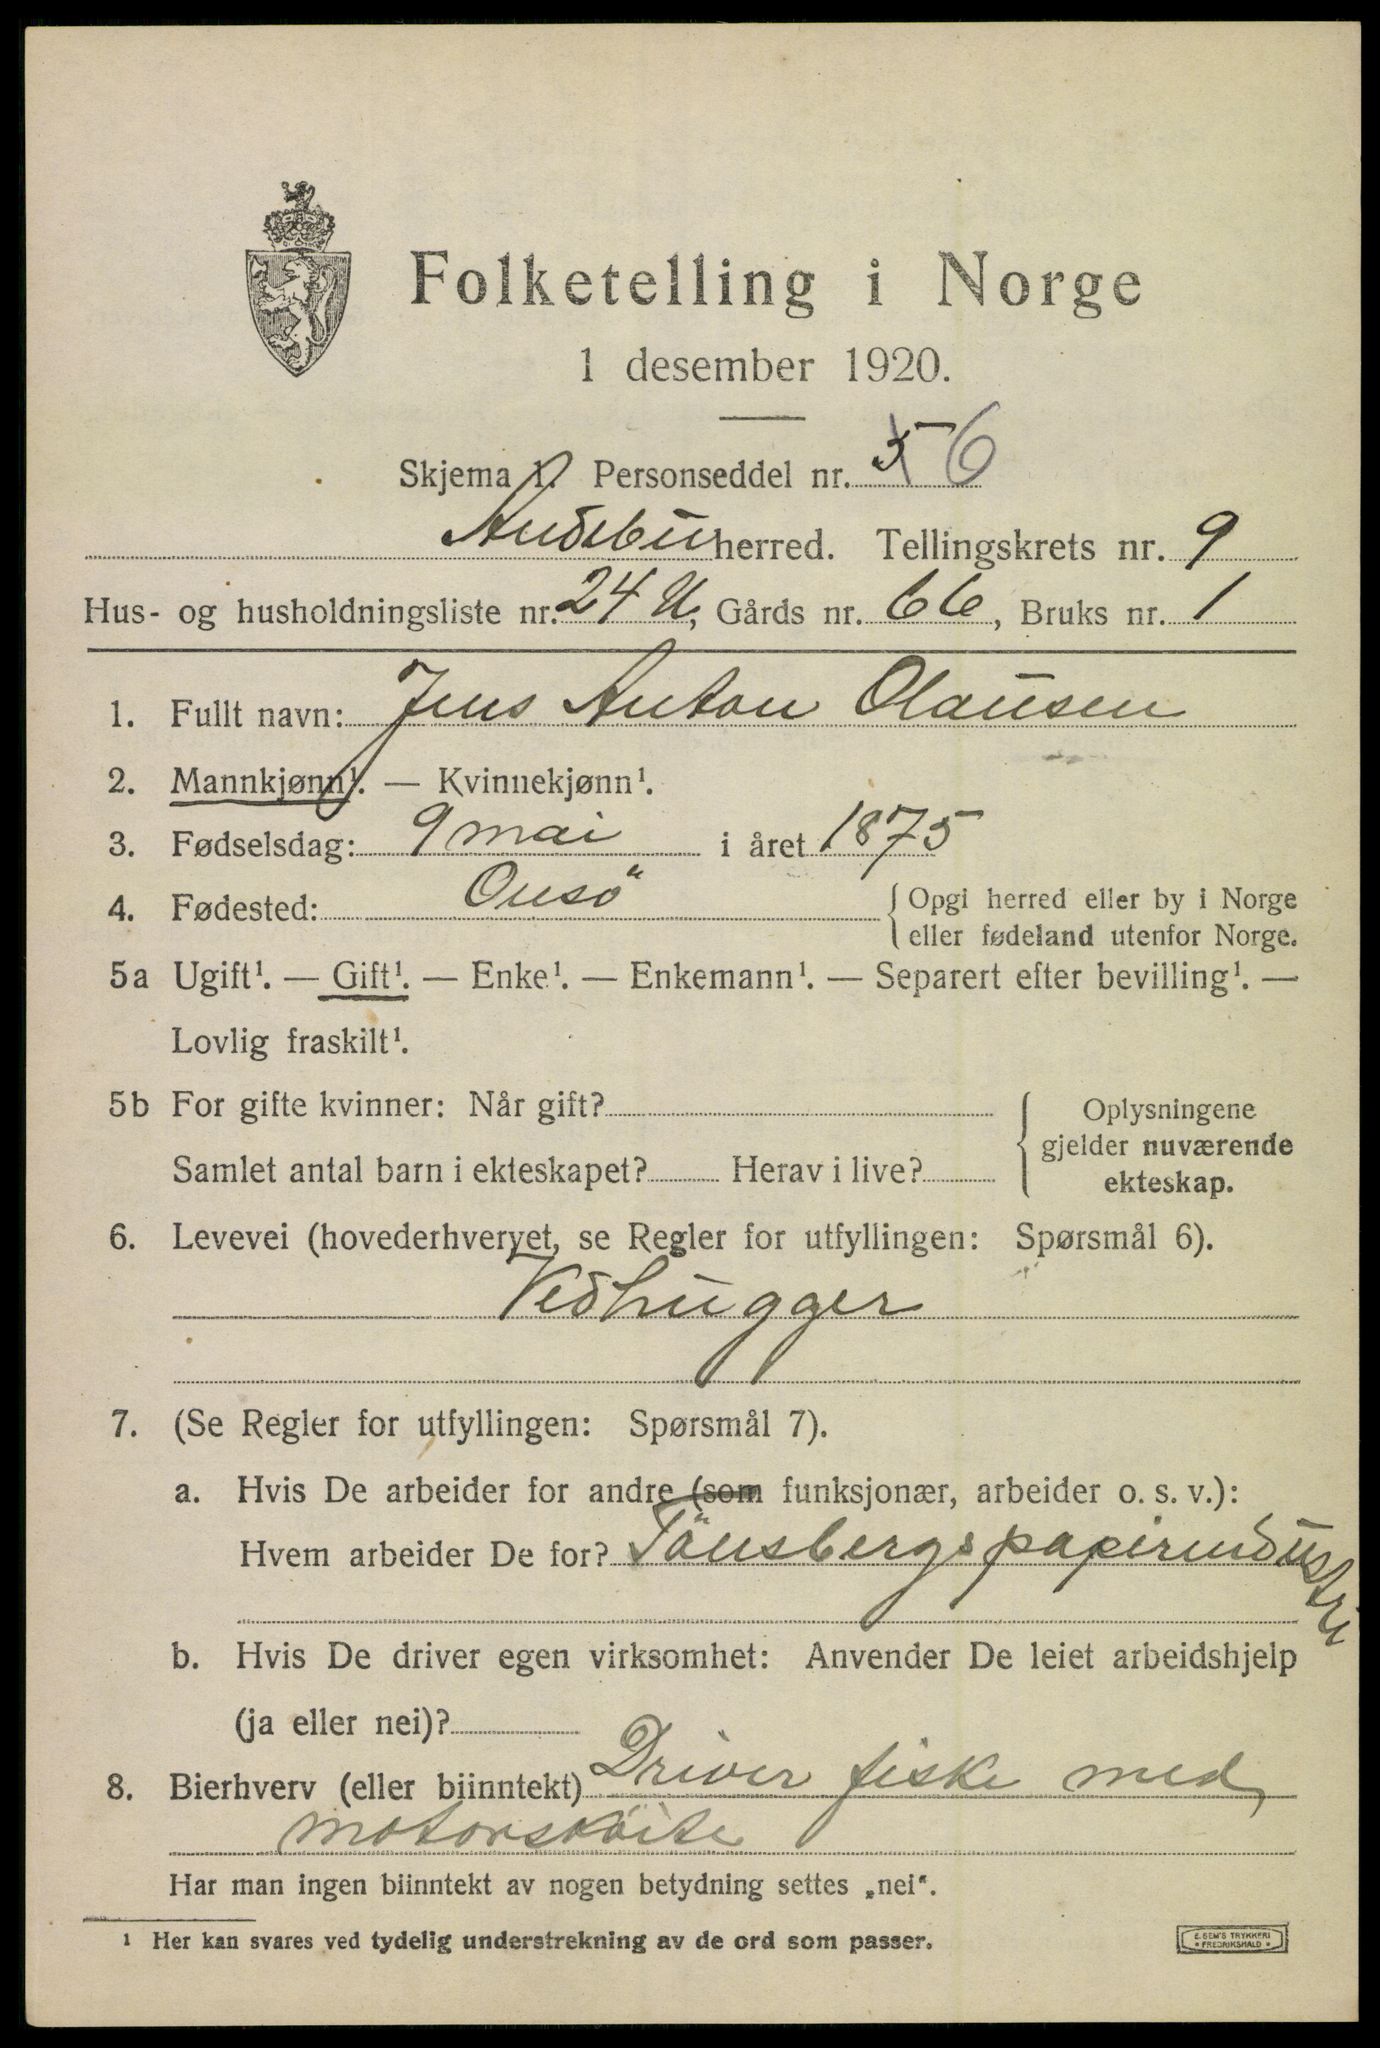 Folketelling i Norge
1 desember 1920.
Skjema 1. Personseddel nr. 5 6
Andebu herred. Tellingskrets nr. 9
Hus- og husholdningsliste nr. 24 U, Gårds nr. 66, Bruks nr. 1
1. Fullt navn: Jens Anton Olausen
2. Mannkjønn¹. — Kvinnekjønn¹.
3. Fødselsdag: 9 mai i året 1875
4. Fødested: Onsö { Opgi herred eller by i Norge
eller fødeland utenfor Norge.
5a Ugift¹. — Gift¹. — Enke¹. — Enkemann¹. — Separert efter bevilling¹. —
Lovlig fraskilt¹.
5b For gifte kvinner: Når gift? { Oplysningene
gjelder nuværende
Samlet antal barn i ekteskapet? Herav i live? ekteskap.
6. Levevei (hovederhvervet, se Regler for utfyllingen: Spørsmål 6).
Vedhugger
7. (Se Regler for utfyllingen: Spørsmål 7).
a. Hvis De arbeider for andre (som funksjonær, arbeider o. s. v.):
Hvem arbeider De for? Tönsbergs papirindustri
b. Hvis De driver egen virksomhet: Anvender De leiet arbeidshjelp
(ja eller nei)?
8. Bierhverv (eller biinntekt) Driver fiske med
motorsköite
Har man ingen biinntekt av nogen betydning settes „nei“.
¹ Her kan svares ved tydelig understrekning av de ord som passer.
E. SEM'S TRYKKERI
* FREDRIKSHALD *